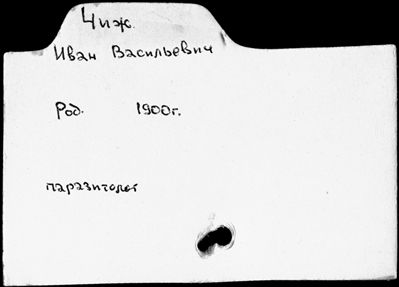 Чиж.
Иван Васильевич
Род. 1900г.
паразитолог